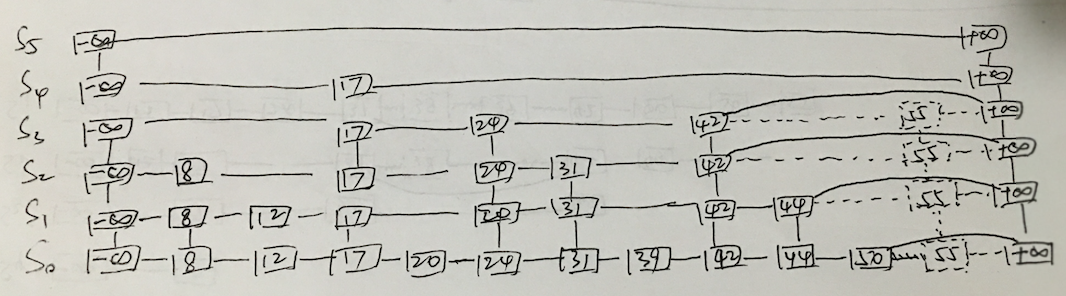 S5 -∞ +∞
S4 -∞ 17 +∞
S3 -∞ 17 24 42 55 +∞
S2 -∞ 8 17 24 31 42 55 +∞
S1 -∞ 8 12 17 24 31 42 44 55 +∞
S0 -∞ 8 12 17 20 24 31 39 42 44 50 55 +∞